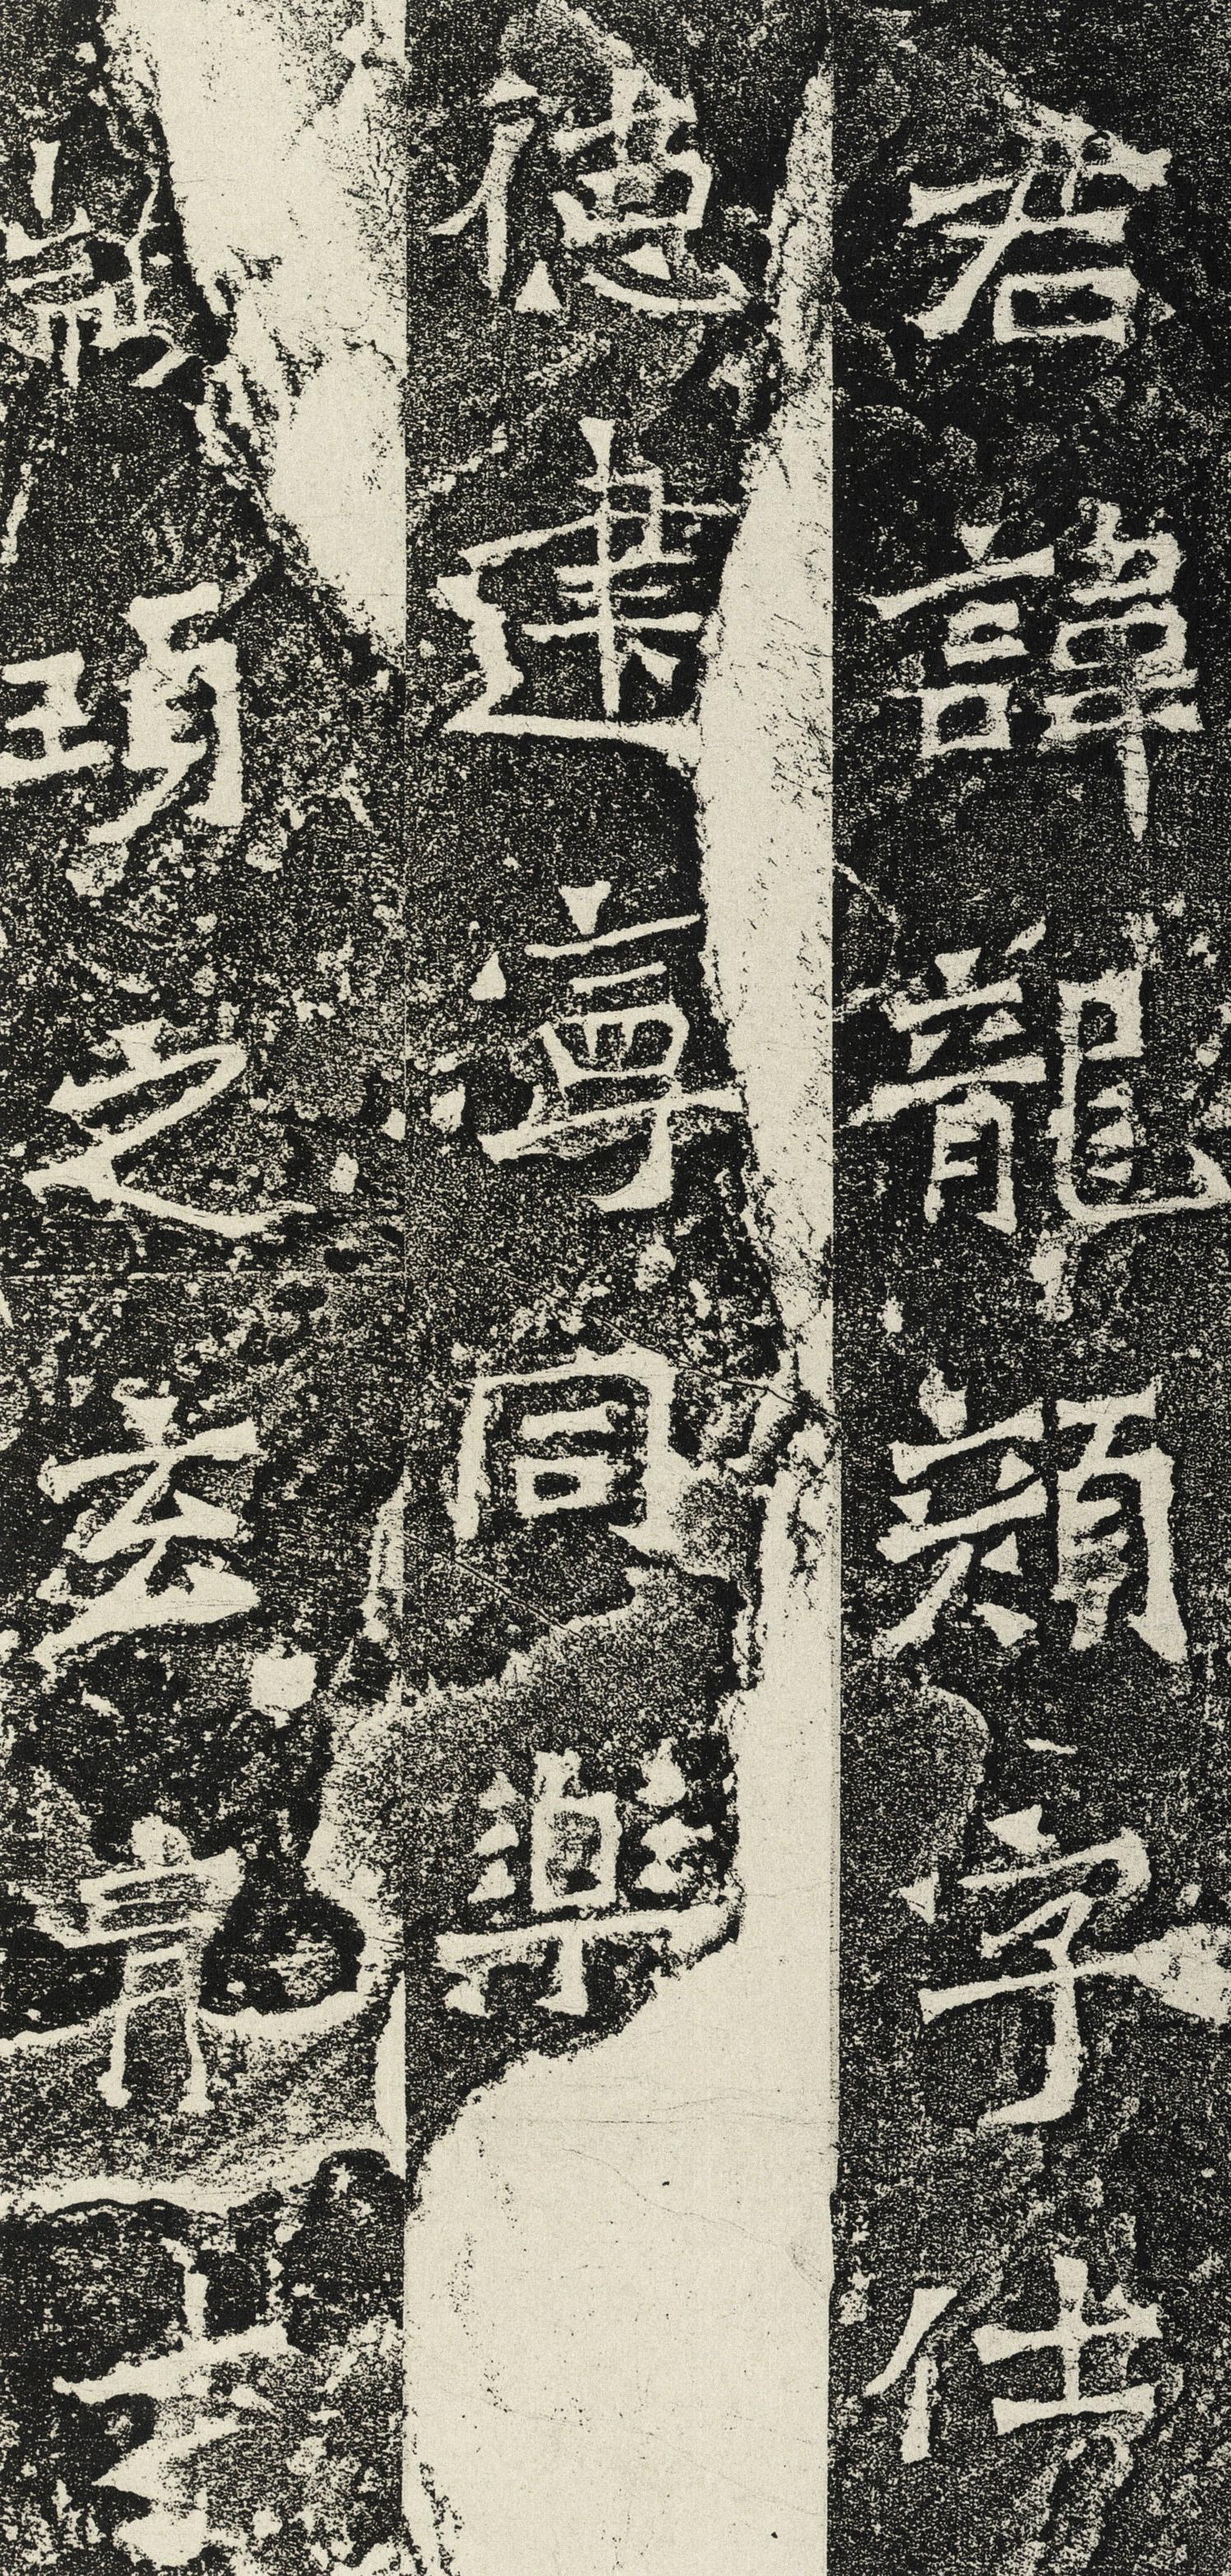 君諱龍顏字仕
德建寧同樂
顓頊之玄胄